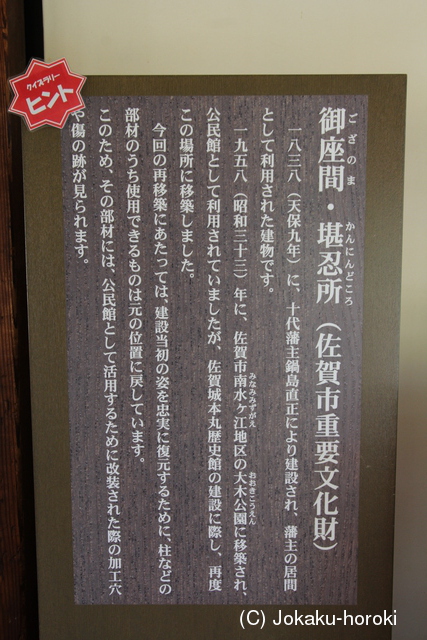 クイズラリー
ヒント
御座間・堪忍所（佐賀市重要文化財）
ござのま
かんにんどころ
一八三八（天保九年）に、十代藩主鍋島直正により建設され、藩主の居間
として利用された建物です。
一九五八（昭和三十三）年に、佐賀市南水ヶ江地区の大木公園に移築され、
みなみみずがえ
おおきこうえん
公民館として利用されていましたが、佐賀城本丸歴史館の建設に際し、再度
この場所に移築しました。
今回の再移築にあたっては、建設当初の姿を忠実に復元するために、柱などの
部材のうち使用できるものは元の位置に戻しています。
このため、その部材には、公民館として活用するために改装された際の加工穴
や傷の跡が見られます。
(C) Jokaku-horoki